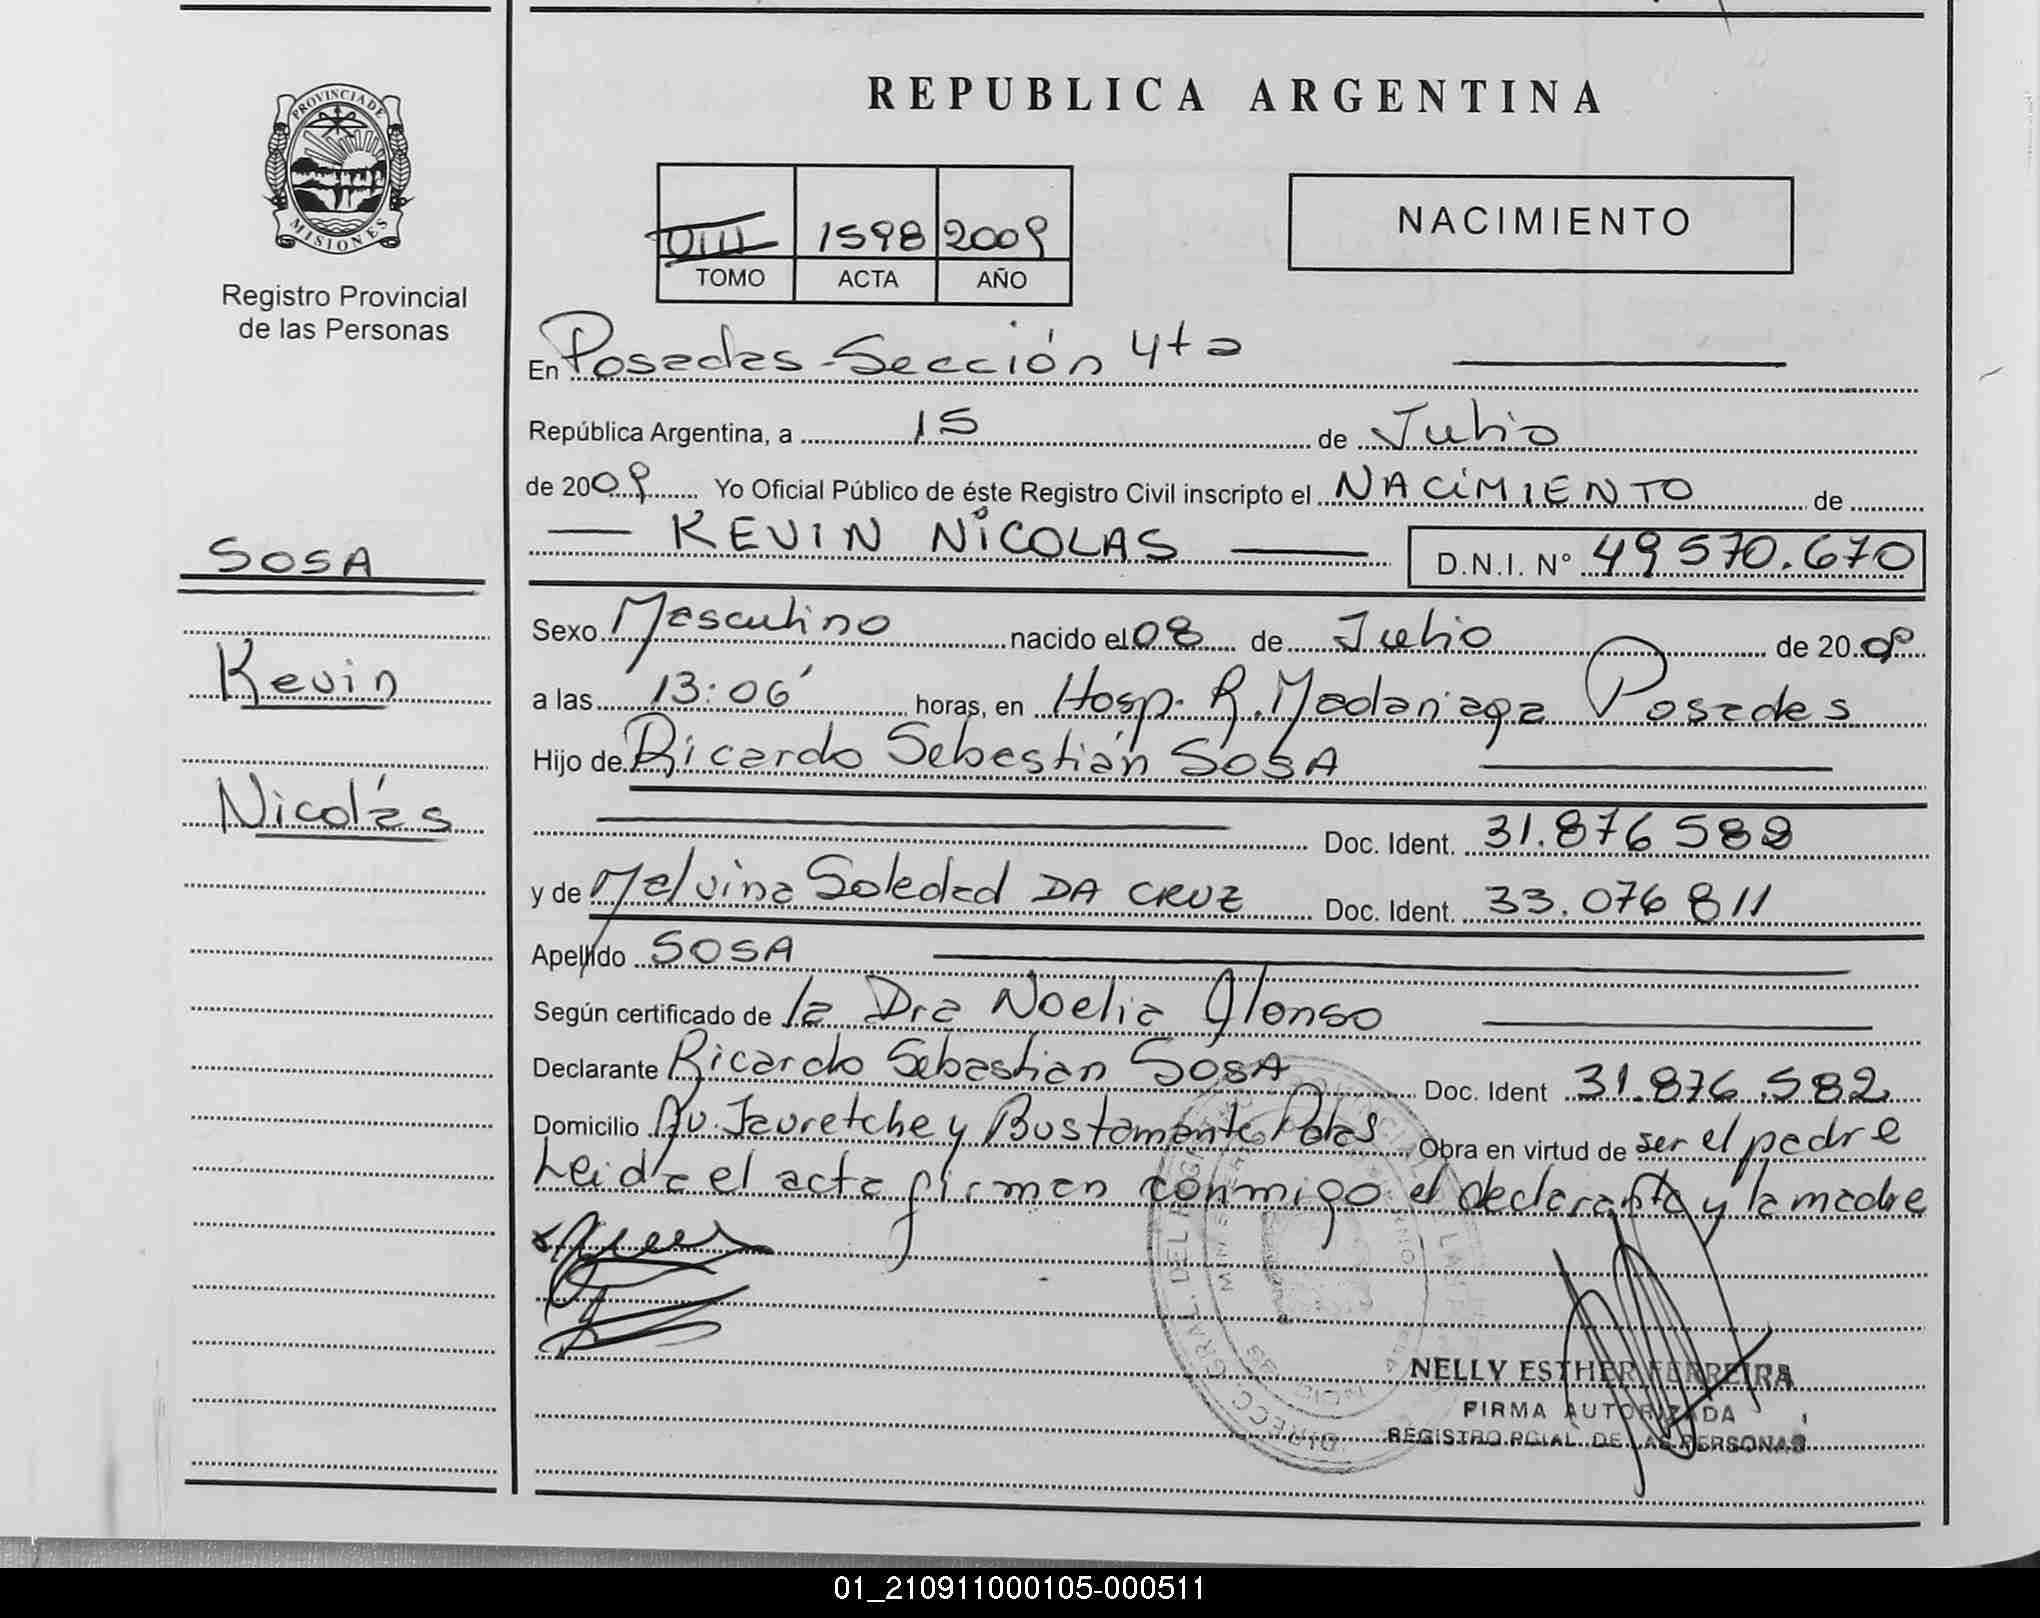 PROVINCIA DE
MISIONES
Registro Provincial
de las Personas
SOSA
Kevin
Nicolás
REPUBLICA ARGENTINA
VIII 1598 2009
TOMO ACTA AÑO
NACIMIENTO
En Posadas - Sección 4ta
República Argentina, a 15 de Julio
de 2009 Yo Oficial Público de éste Registro Civil inscripto el NACIMIENTO de
KEVIN NICOLAS D.N.I. Nº 49570.670
Sexo Masculino nacido el 08 de Julio de 2009
a las 13:06' horas, en Hosp. R. Madariaga Posadas
Hijo de Ricardo Sebastián SOSA
Doc. Ident. 31.876 582
y de Malvina Soledad DA CRUZ Doc. Ident. 33.076 811
Apellido SOSA
Según certificado de la Dra Noelia Alonso
Declarante Ricardo Sebastian SOSA Doc. Ident 31.876.582
Domicilio Av. Jauretche y Bustamante Pdas Obra en virtud de ser el padre
Leida el acta firman conmigo el declarante y la madre
NELLY ESTHER FERREIRA
FIRMA AUTORIZADA
REGISTRO PCIAL. DE LAS PERSONAS
01_210911000105-000511